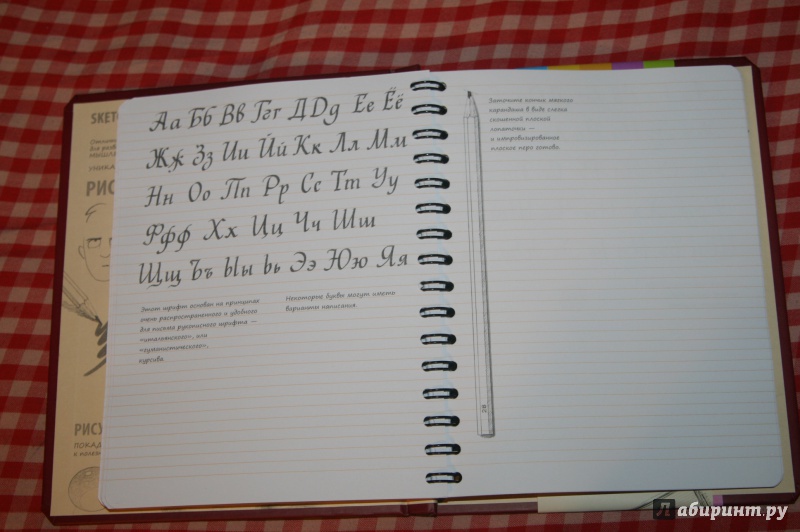 SKETC
РИС
РИСУ
ПОКАД
Аа Бб Вв Ггг ДDg Ее Ёё
Жж Зз Ии Йй Кк Лл Мм
Нн Оо Пп Рр Сс Тт Уу
Ффф Хх Цц Чч Шш
Щщ Ъъ Ыы Ьь Ээ Юю Яя
Этот шрифт основан на принципах
очень распространенного и удобного
для письма рукописного шрифта —
«итальянского», или
«гуманистического»,
курсива.
Некоторые буквы могут иметь
варианты написания.
Заточите кончик мягкого
карандаша в виде слегка
скошенной плоской
лопаточки —
и импровизированное
плоское перо готово.
2B
Лабиринт.ру